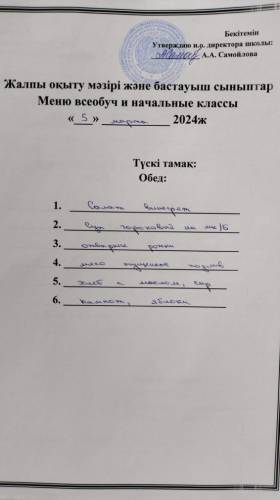 Бекітемін
Утверждаю и.о. директора школы:
А.А. Самойлова
Жалпы оқыту мәзірі және бастауыш сыныптар
Меню всеобуч и начальные классы
« 5 » марта 2024ж
Түскі тамақ:
Обед:
1. Салат винегрет
2. Суп гороховый на мк/б
3. отварные рожки
4. мясо тушеное подлив
5. хлеб с маслом, сыр
6. компот, яблоки